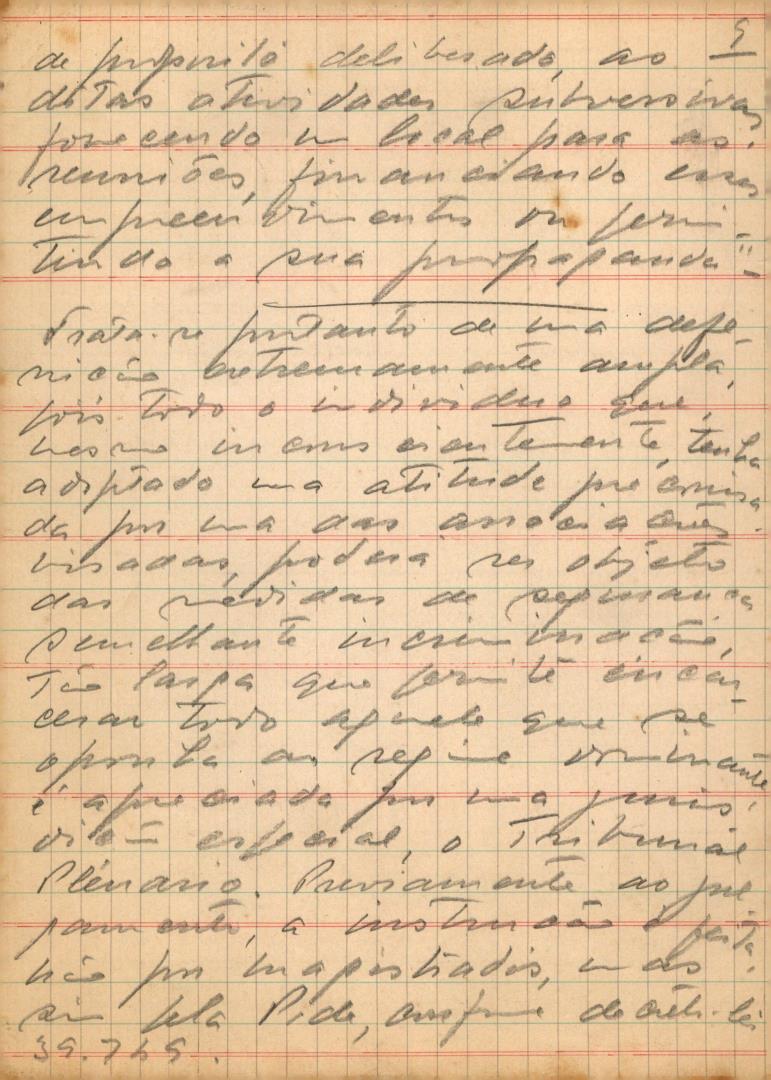 9
de proposito deliberado, ao
ditas atividades subversivas,
fornecendo um local para as
reuniões, financiando esses
empreendimentos ou permi-
tindo a sua propaganda"
Trata-se portanto de uma defi-
nição extremamente ampla,
pois todo o individuo que,
mesmo inconscientemente, tenha
adoptado uma atitude preconisa-
da por uma das associações
visadas, poderá ser objeto
das medidas de segurança
semelhante incriminação,
tão larga que permite encar-
cerar todo aquele que se
oponha ao regime dominante,
é apreciada por uma juris-
dição especial, o Tribunal
Plenário. Previamente ao jul
gamento, a instrução é feita,
não por magistrados, mas
sim pela Pide, conforme decreto-lei
39.749.